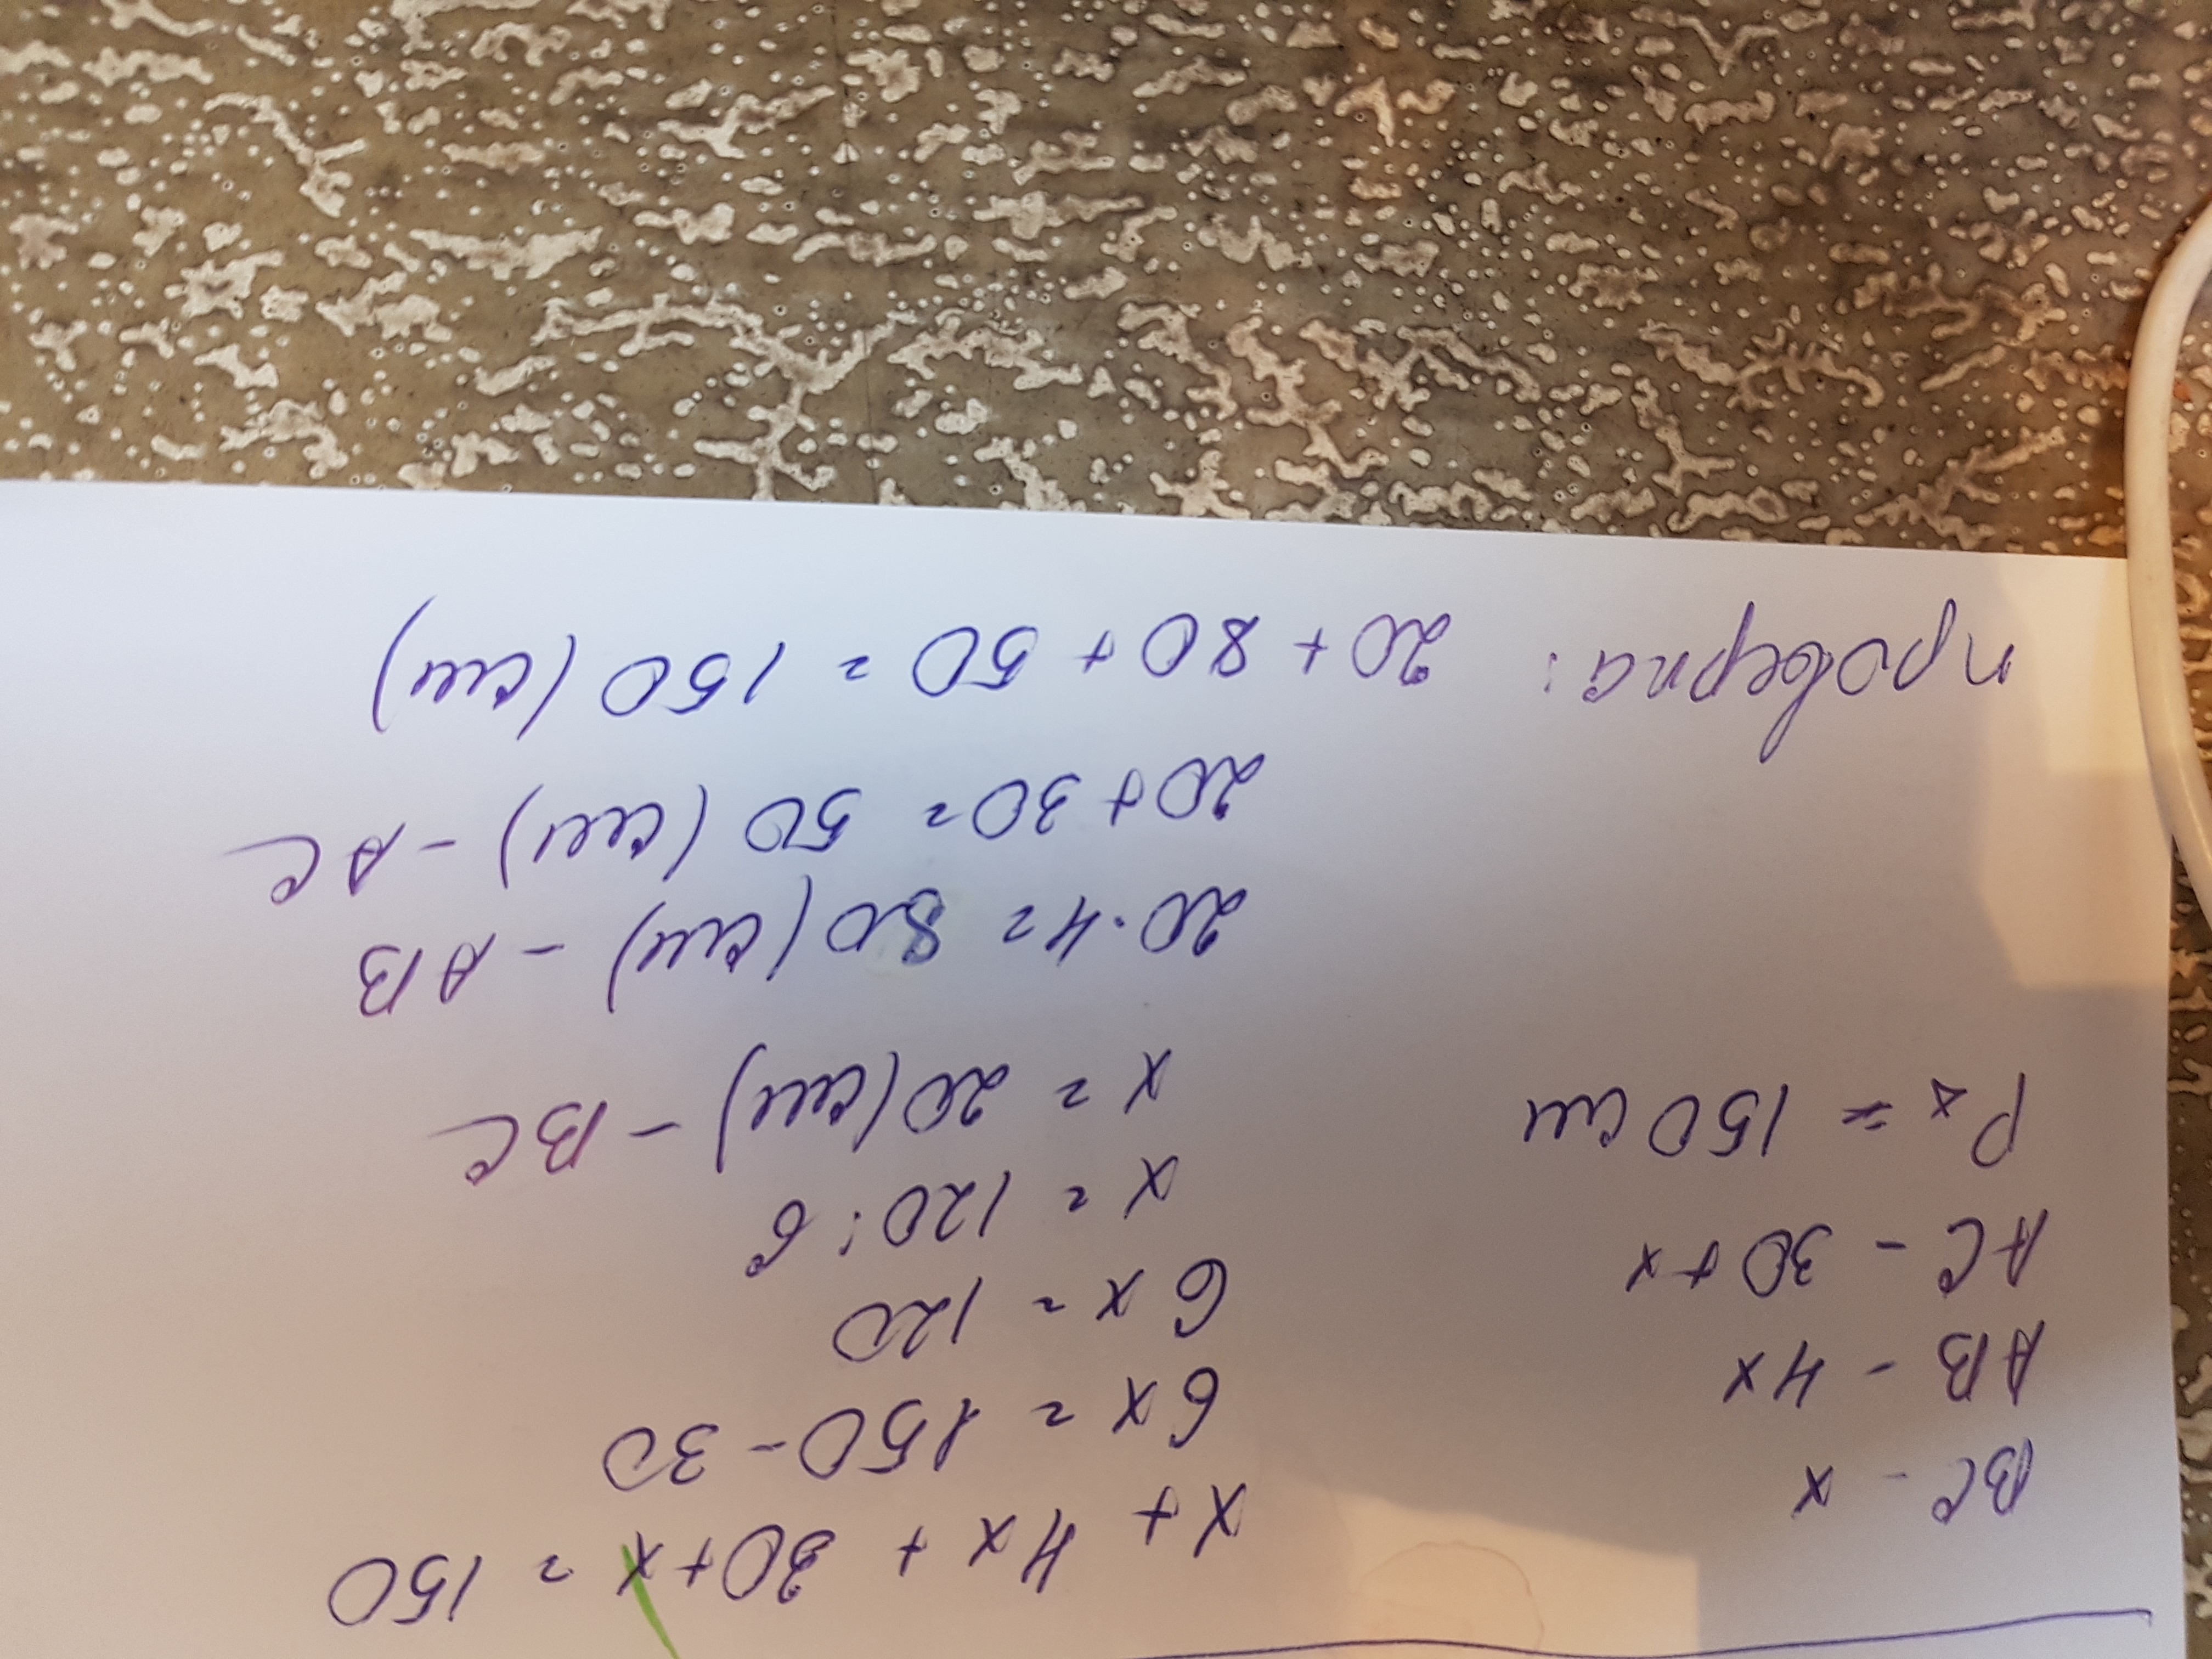 BC - x
AB - 4x
AC - 30+x
P△ = 150 см
x + 4x + 30+x = 150
6x = 150 - 30
6x = 120
x = 120 : 6
x = 20 (см) - BC
20·4 = 80 (см) - AB
20+30 = 50 (см) - AC
проверка: 20 + 80 + 50 = 150 (см)